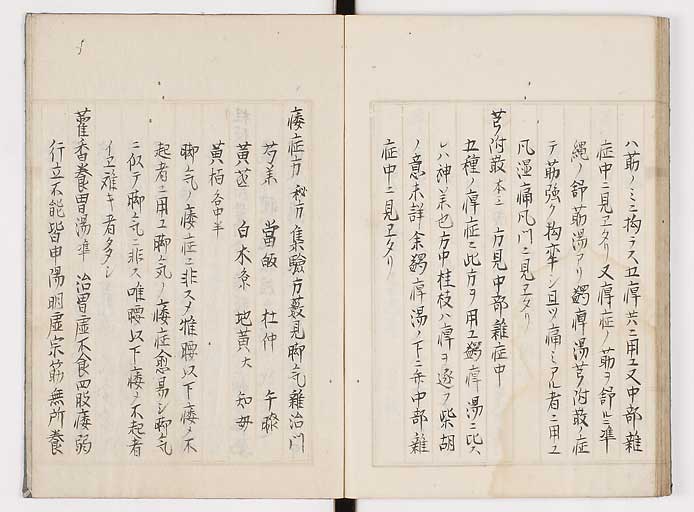 ハ筋ノミニ拘ラス五痺共ニ用ユ又中部雜
症中ニ見ヱタリ又痺症ノ筋ヲ舒ルニ準
繩ノ舒筋湯アリ蠲痺湯芎附散ノ症
テ筋強ク拘攣シ且ツ痛ミアル者ニ用ユ
凡湿痛凡門ニ見ヱタリ
芎附散 本ニ 方見中部雜症中
五種ノ痺症ニ此方ヲ用ユ蠲痺湯ニ比ス
レハ神美也方中桂枝ハ痺ヲ逐フ柴胡
ノ意未詳余蠲痺湯ノ下ニ弁中部雜
症中ニ見ヱタリ
痿症方 秘方集驗方蘞見脚気雜治門
芍薬 當皈 杜仲 牛膝
黄芪 白术 地黄大 知母
黄栢各中半
脚気ノ痿症ニ非スメ惟腰以下痿メ不
起者ニ用ユ脚気ノ痿症愈易シ脚気
ニ似テ脚気ニ非ス唯腰以下痿メ不起者
イヱ難キ者多シ
藿香養胃湯準 治胃虚不食四肢痿弱
行立不能皆由陽明虚宗筋無所養